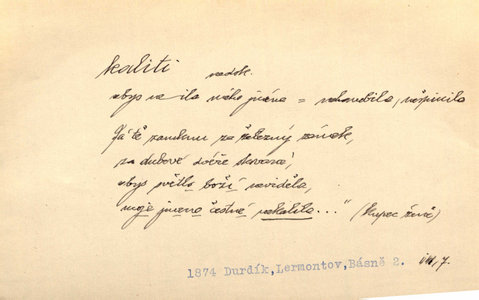 kaliti nedok.
abys na ila mého jména = nehanobila, nešpinila
Já tě zamknu za železný zámek,
za dubové dvéře kované,
abys světlo boží neviděla,
moje jméno čestné nekalila..." (Kupec ženě)
1874 Durdík,Lermontov,Básně 2. III,7.